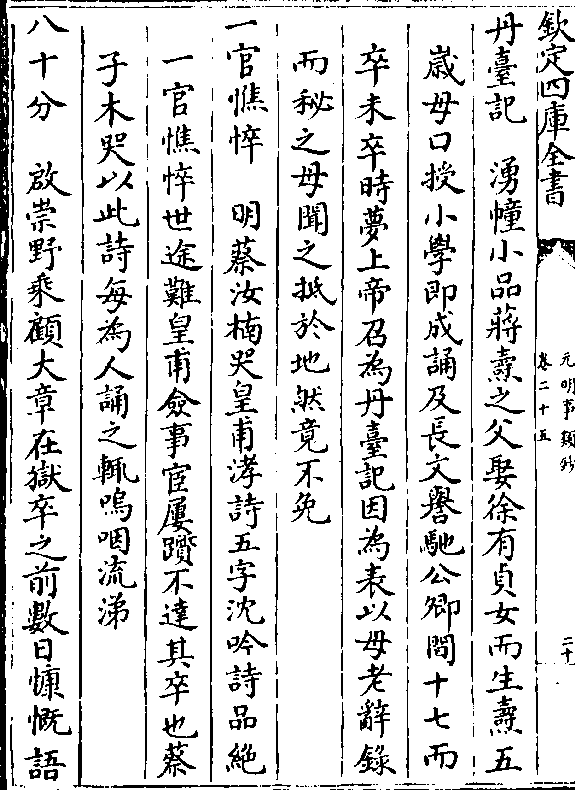 欽定四庫全書
元明事類鈔
卷二十五
二十
丹臺記　湧幢小品蔣燾之父娶徐有貞女而生燾五
歲母口授小學即成誦及長文譽馳公卿間十七而
卒未卒時夢上帝召為丹臺記因為表以母老辭錄
而秘之母聞之抵於地然竟不免
一官憔悴　明蔡汝楠哭皇甫涍詩五字沈吟詩品絶
一官憔悴世途難皇甫僉事宦屢躓不達其卒也蔡
子木哭以此詩每為人誦之輒嗚咽流涕
八十分　啟崇野乘顧大章在獄卒之前數日慷慨語